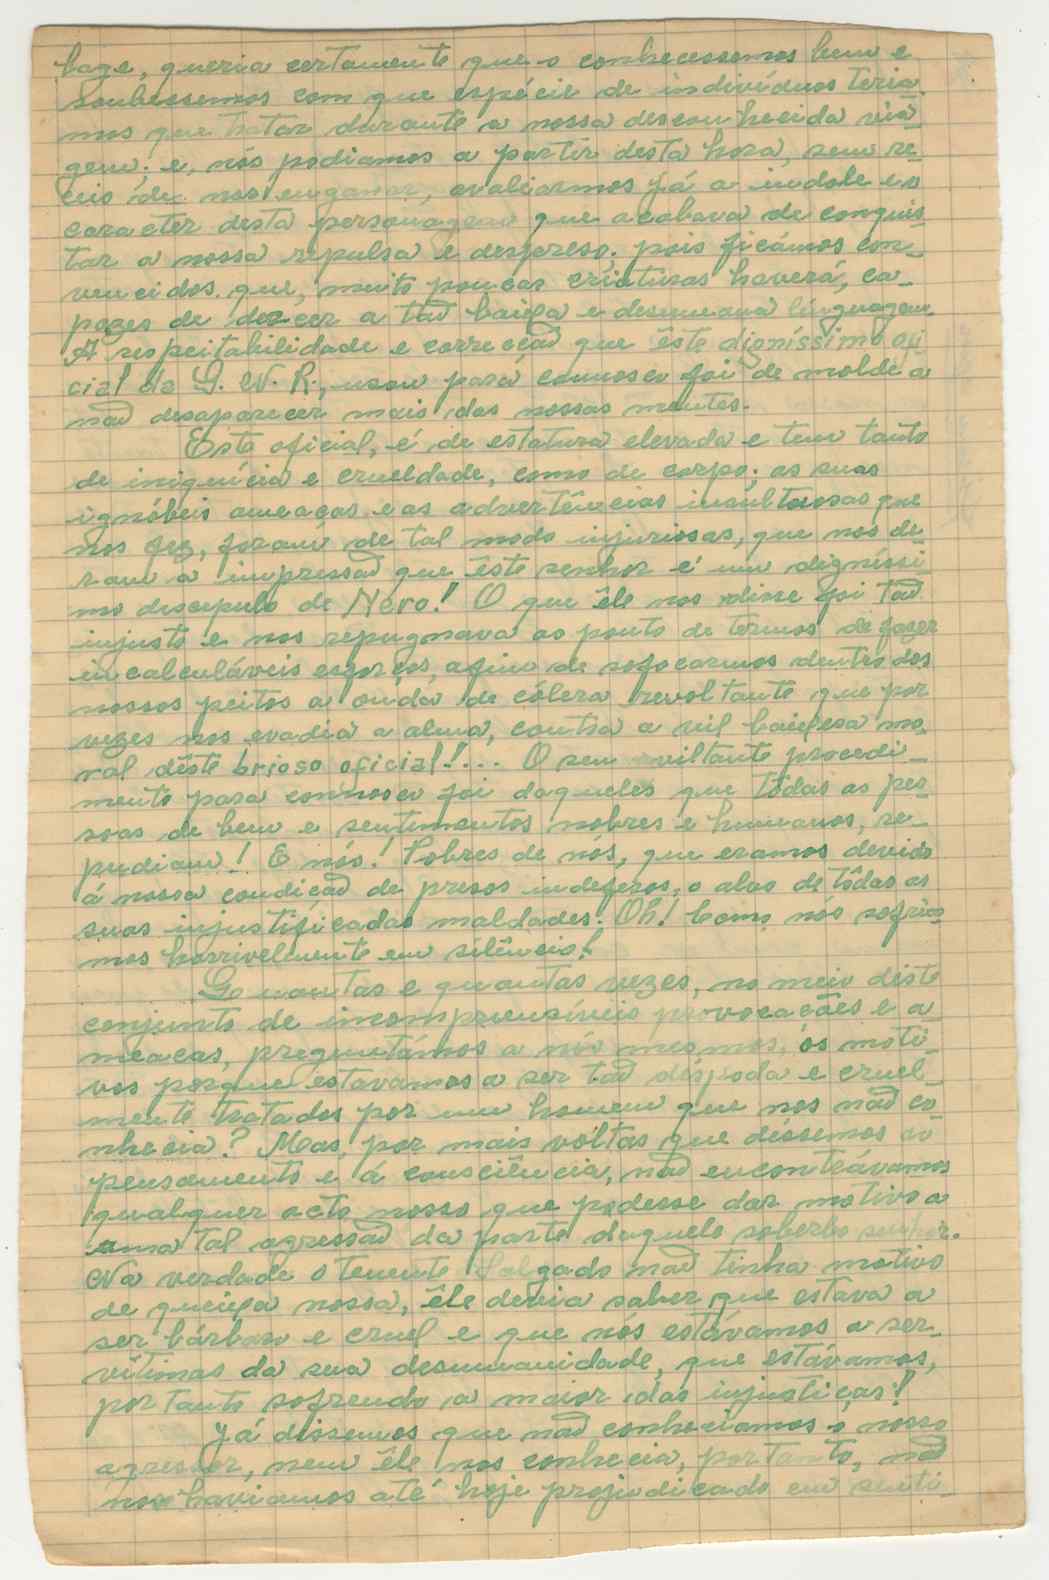 bage, queria certamente que o conhecessemos bem e
soubessemos com que espécie de indivíduos teria
mos que tratar durante a nossa desconhecida via-
gem; e, nós podiamos a partir desta hora, sem re-
ceio de nos enganar, avaliarmos já a indole e o
caracter desta personagem que acabava de conquis
tar a nossa repulsa e despreso. pois ficámos con-
vencidos que, muito poucas criaturas haverá, ca-
pazes de descer a tão baixa e desumana linguagem
A respeitabilidade e correcção que êste digníssimo ofi
cial da G. N. R., usou para connosco foi de molde a
não desaparecer mais das nossas mentes.
Este oficial, é de estatura elevada e tem tanto
de iniquícia e crueldade, como de corpo; as suas
ignóbeis ameaças e as advertências insultuosas que
nos fez, foram de tal modo injuriosas, que nos de-
ram a impressão que êste senhor é um digníssi
mo discipulo de Nero! O que êle nos disse foi tão
injusto e nos repugnava ao ponto de termos de fazer
incalculáveis esforços, afim de sofocarmos dentro dos
nossos peitos a onda de cólera revoltante que por
vezes nos evadia a alma, contra a vil baixesa mo-
ral dêste brioso oficial!!... O seu viltante procedi-
mento para connosco foi daqueles que tôdas as pes-
soas de bem e sentimentos nobres e humanos, re-
pudiam! E nós! Pobres de nós, que eramos devido
á nossa condição de presos indefezos, o alvo de tôdas as
suas injustificadas maldades! Oh! Como nós sofria
mos horrivelmente em silêncio!
Quantas e quantas vezes, no meio dêste
conjunto de incompreensíveis provocações e a
meaças, preguntámos a nós mesmos, os moti-
vos porque estavamos a ser tão déspoda e cruel-
mente tratados por um homem que nos não co
nhecia? Mas, por mais voltas que déssemos ao
pensamento e á consciência, não encontrávamos
qualquer acto nosso que podesse dar motivo a
uma tal agressão da parte daquele soberbo senhor.
Na verdade o tenente Salgado não tinha motivo
de queixa nossa, êle devia saber que estava a
ser bárbaro e cruel e que nós estávamos a ser-
vítimas da sua desumanidade, que estávamos,
portanto sofrendo a maior das injustiças!
Já dissemos que não conheciamos o nosso
agressor, nem êle nos conhecia, portanto, não
nos haviamos até hoje projudicado em senti-